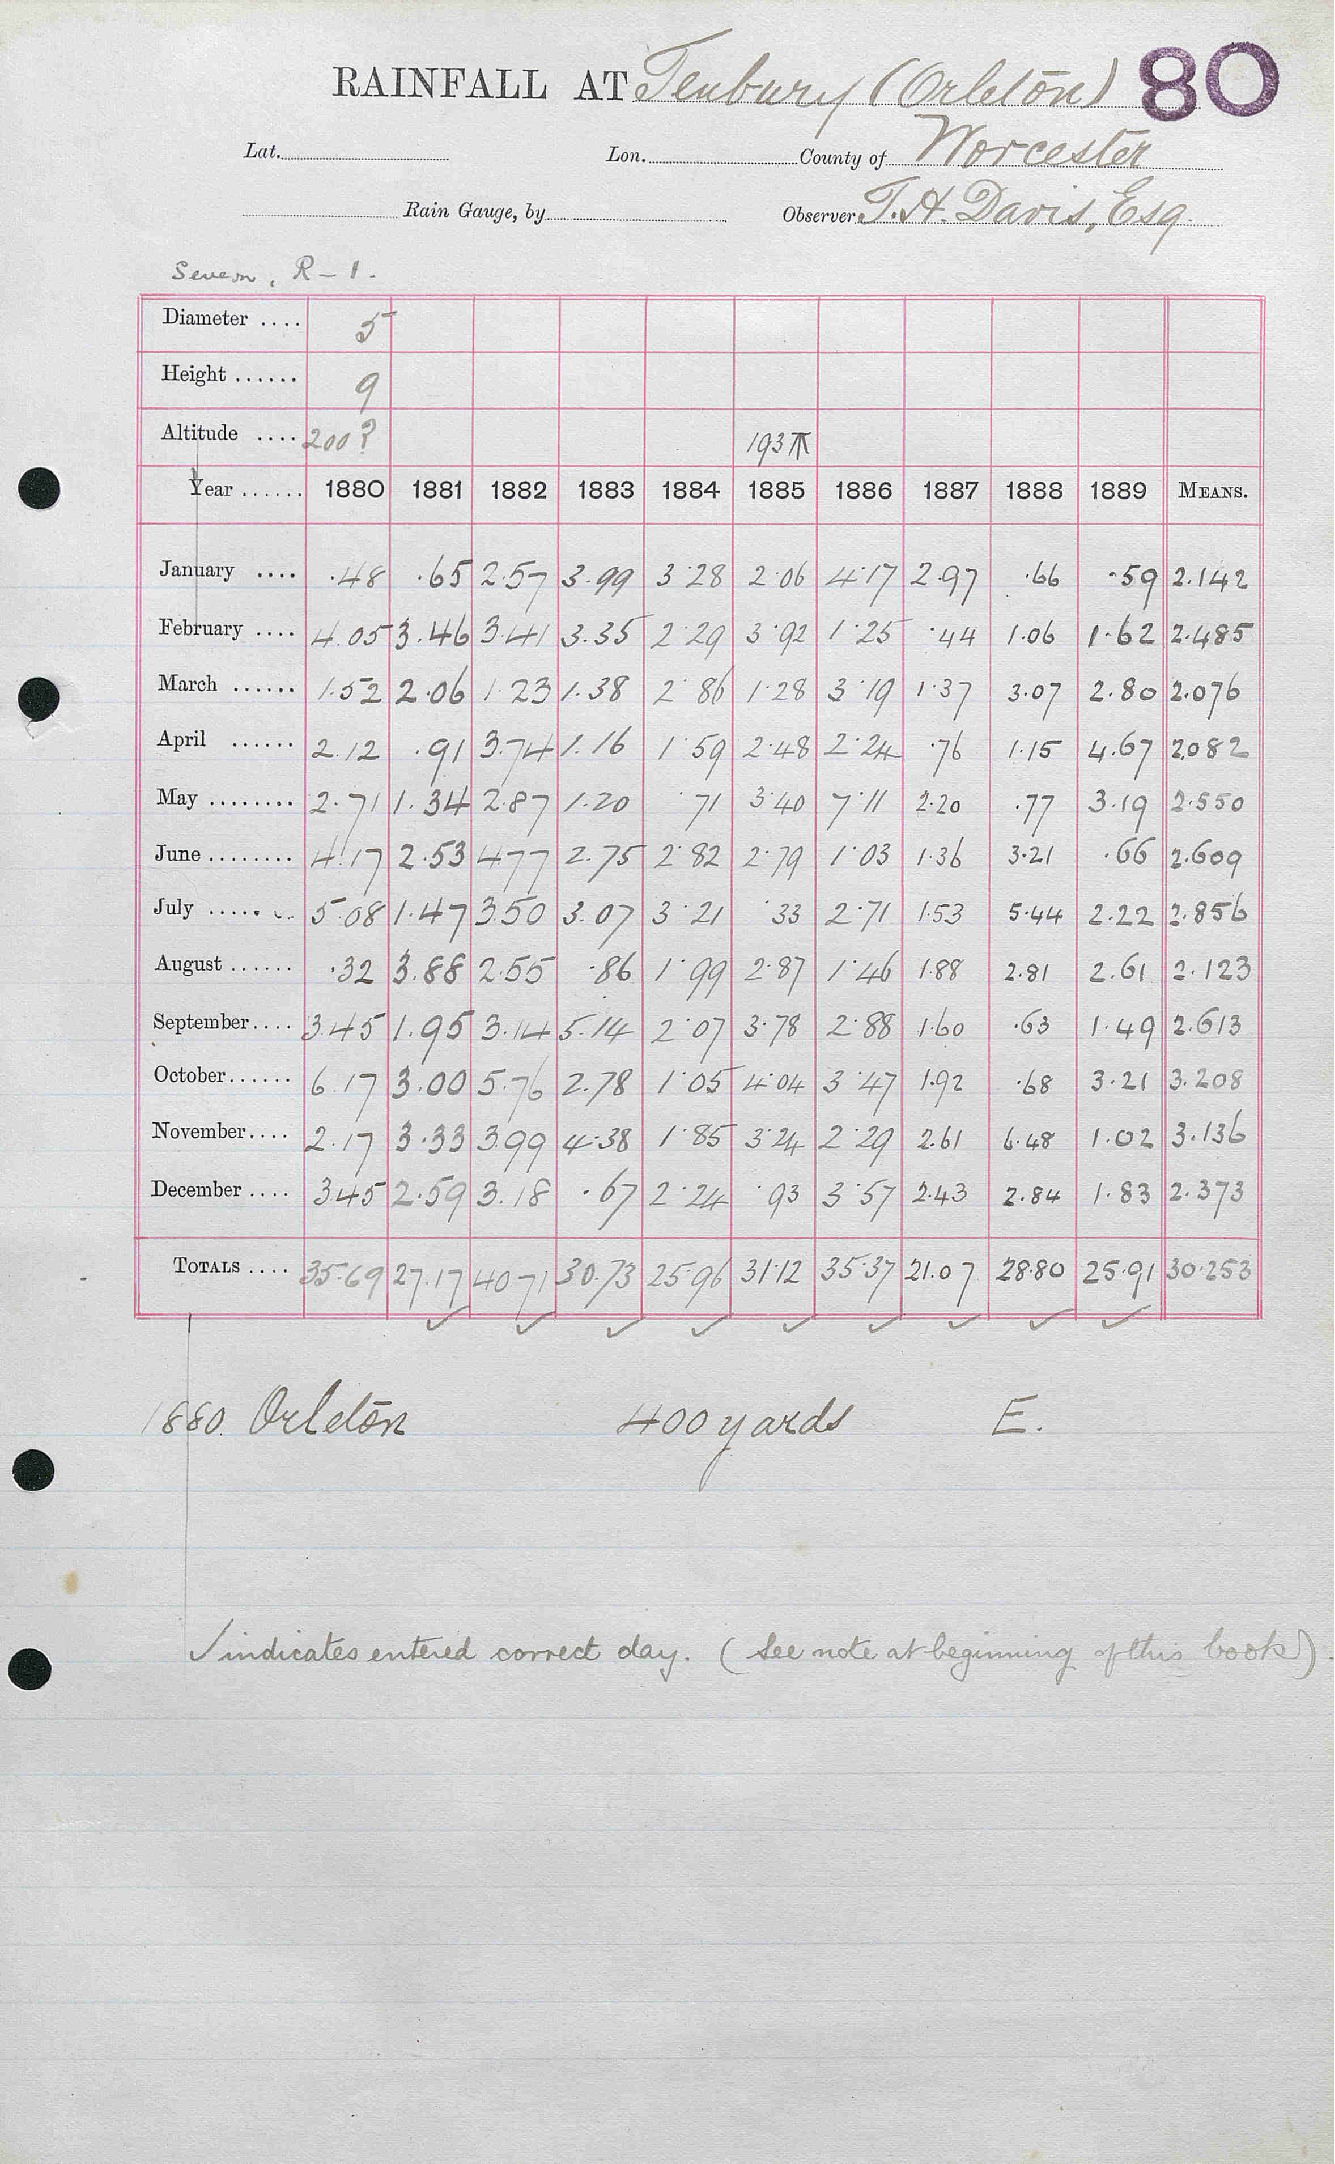 RAINFALL AT Tenbury (Orleton) 80
Lat. Lon. County of Worcester
Rain Gauge, by Observer T. H. Davis, Esq.
Severn, R - 1.
Diameter .... 5
Height ...... 9
Altitude .... 200? 193
Year ...... 1880 1881 1882 1883 1884 1885 1886 1887 1888 1889 MEANS.
January .... .48 .65 2.57 3.99 3.28 2.06 4.17 2.97 .66 .59 2.142
February .... 4.05 3.46 3.41 3.35 2.29 3.92 1.25 .44 1.06 1.62 2.485
March ...... 1.52 2.06 1.23 1.38 2.86 1.28 3.19 1.37 3.07 2.80 2.076
April ...... 2.12 .91 3.74 1.16 1.59 2.48 2.24 .76 1.15 4.67 2.082
May ........ 2.71 1.34 2.87 1.20 .71 3.40 7.11 2.20 .77 3.19 2.550
June ........ 4.17 2.53 4.77 2.75 2.82 2.79 1.03 1.36 3.21 .66 2.609
July ........ 5.08 1.47 3.50 3.07 3.21 .33 2.71 1.53 5.44 2.22 2.856
August ...... .32 3.88 2.55 .86 1.99 2.87 1.46 1.88 2.81 2.61 2.123
September.... 3.45 1.95 3.14 5.14 2.07 3.78 2.88 1.60 .63 1.49 2.613
October...... 6.17 3.00 5.76 2.78 1.05 4.04 3.47 1.92 .68 3.21 3.208
November.... 2.17 3.33 3.99 4.38 1.85 3.24 2.29 2.61 6.48 1.02 3.136
December .... 3.45 2.59 3.18 .67 2.24 .93 3.57 2.43 2.84 1.83 2.373
TOTALS .... 35.69 27.17 40.71 30.73 25.96 31.12 35.37 21.07 28.80 25.91 30.253
✓ ✓ ✓ ✓ ✓ ✓ ✓ ✓ ✓
1880. Orleton 400 yards E.
✓ indicates entered correct day. (See note at beginning of this book).